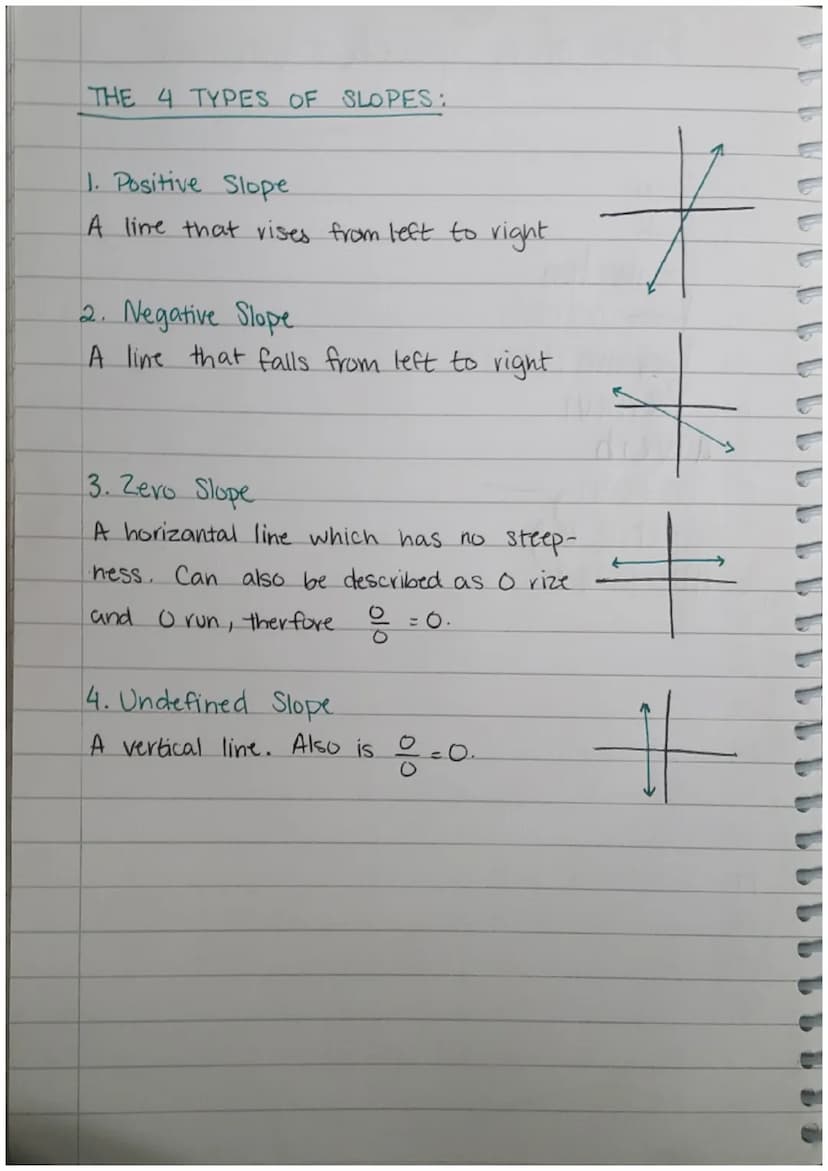 THE 4 TYPES OF SLOPES:
1. Positive Slope
A line that rises from left to right
2. Negative Slope
A line that falls from left to right
3. Zero Slope
A horizantal line which has no steep-
ness. Can also be described as 0 rize
and 0 run, therfore 0/0 = 0.
4. Undefined Slope
A vertical line. Also is 0/0 = 0.